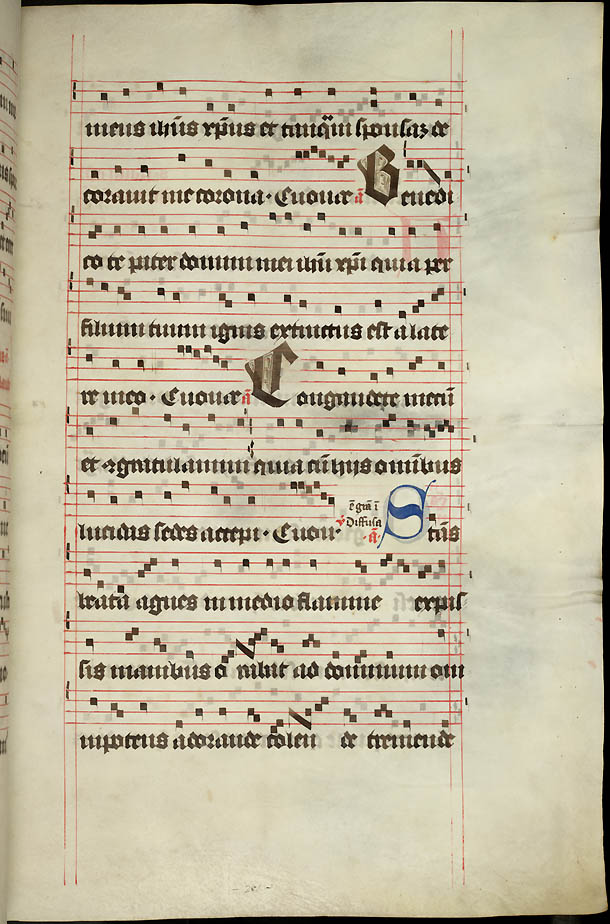 meus ihūs xp̄us et tanq̄m sponsaz de
corauit me corona · Euouae a᷈ Benedi
co te pater domini mei ihū xp̄i quia per
filium tuum ignis extinctus est a late
re meo · Euouae a᷈ Congaudete mecū
et ꝯgratulamini quia cū hijs omnibus
lucidis sedes accepi · Euou
℣ Diffusa
a᷈ Stās
beata agnes in medio flamme expās
sis manibus o rabat ad dominum om
nipotens adorande colen de tremende